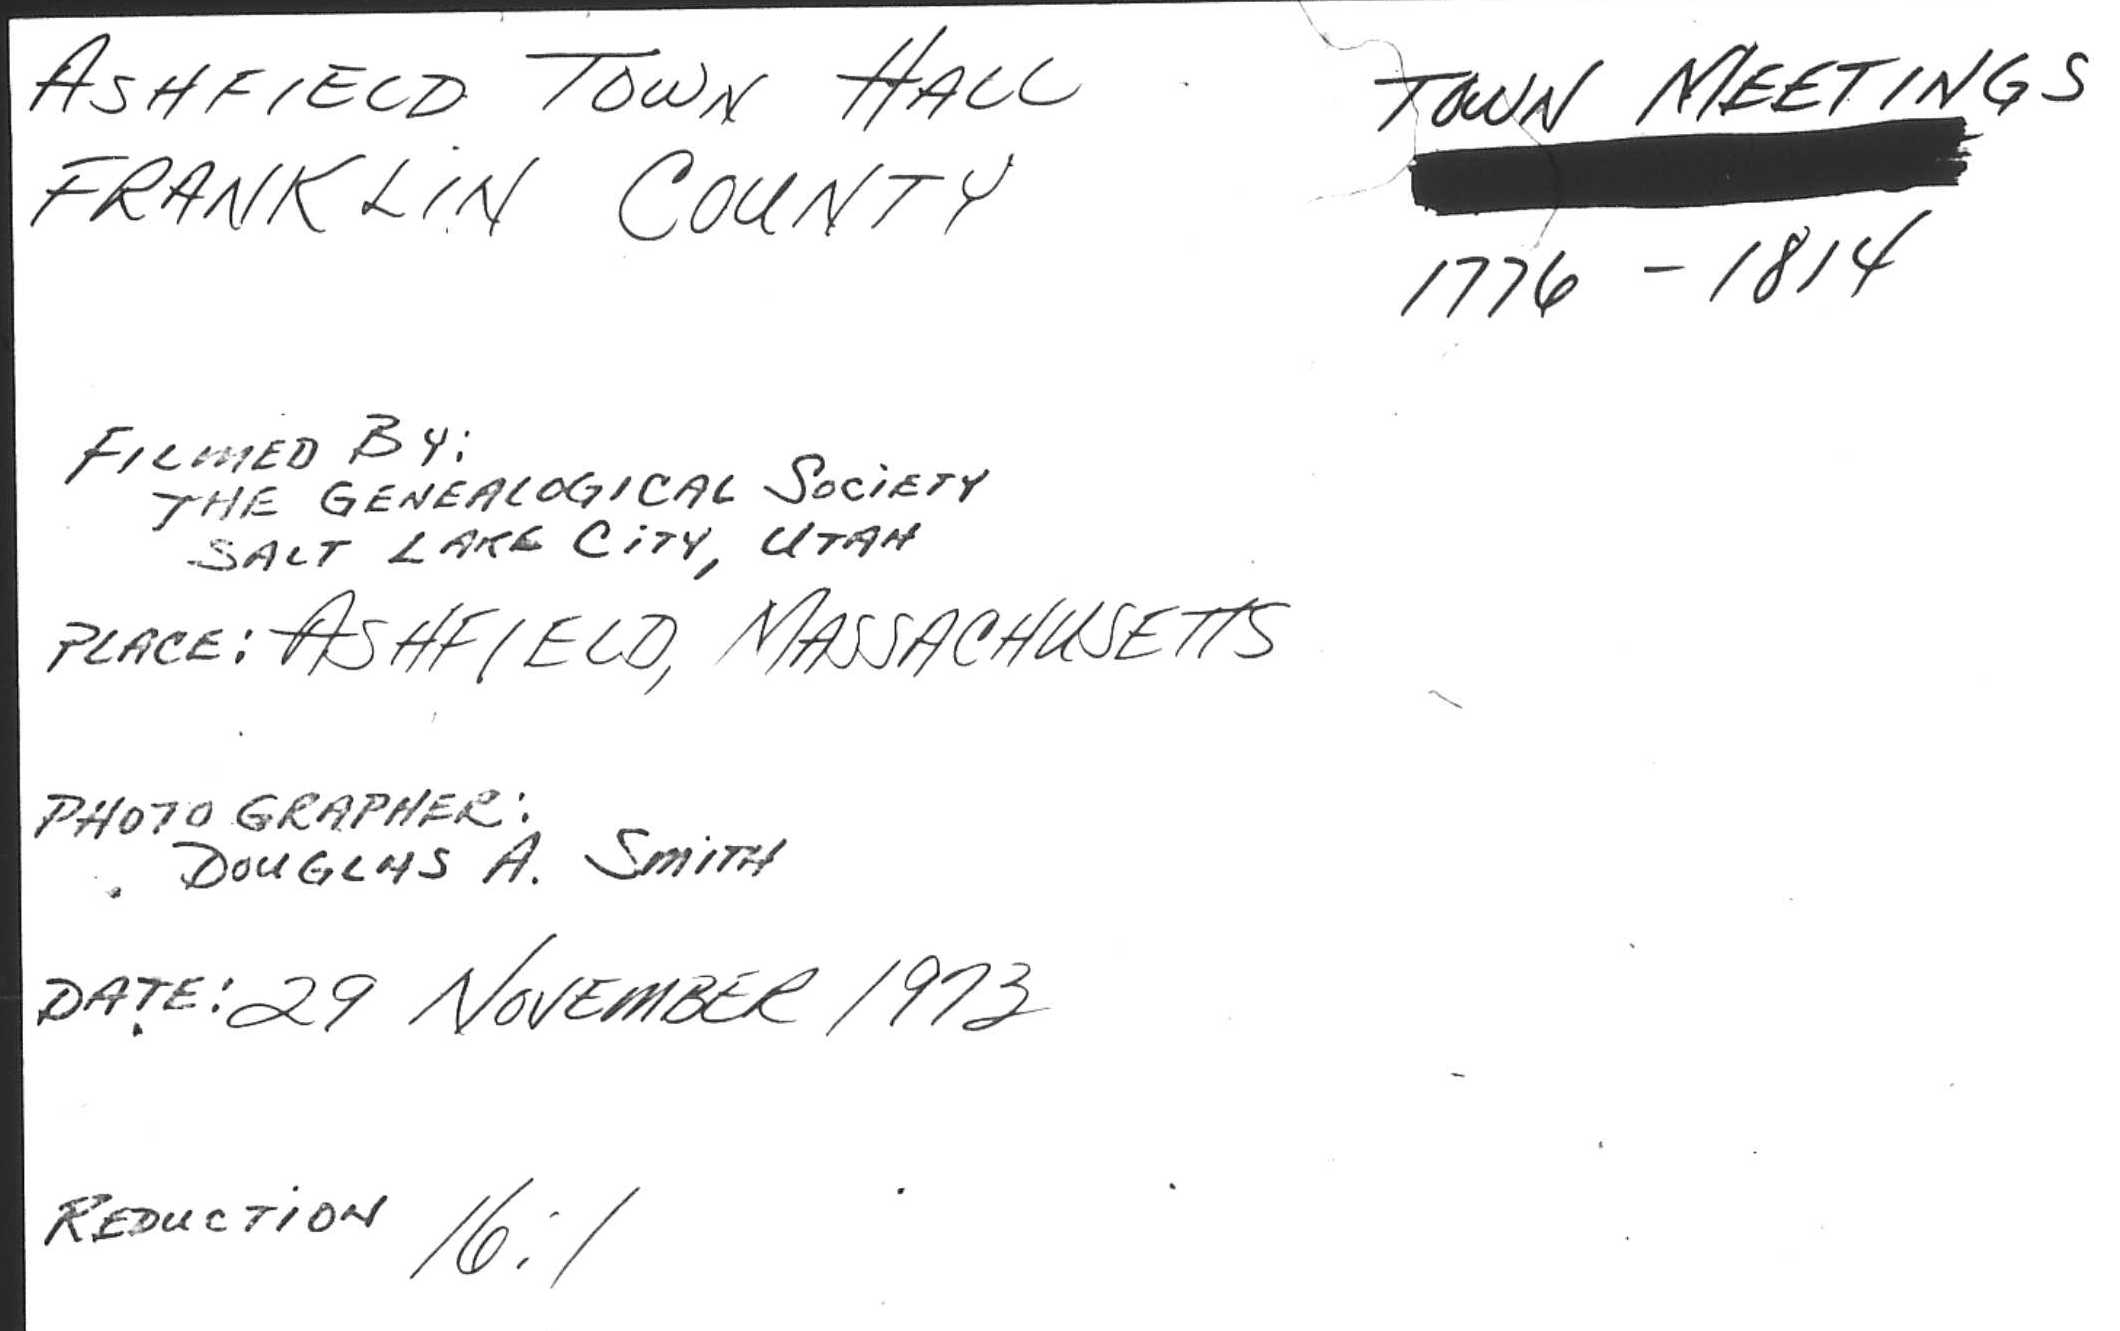 ASHFIELD TOWN HALL
FRANKLIN COUNTY
TOWN MEETINGS
1776 - 1814
FILMED BY:
THE GENEALOGICAL SOCIETY
SALT LAKE CITY, UTAH
PLACE: ASHFIELD, MASSACHUSETTS
PHOTOGRAPHER:
DOUGLAS A. SMITH
DATE: 29 NOVEMBER 1973
REDUCTION 16:1